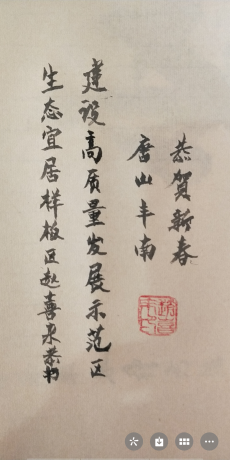 恭贺新春
唐山丰南
建设高质量发展示范区
生态宜居样板区赵喜来恭书